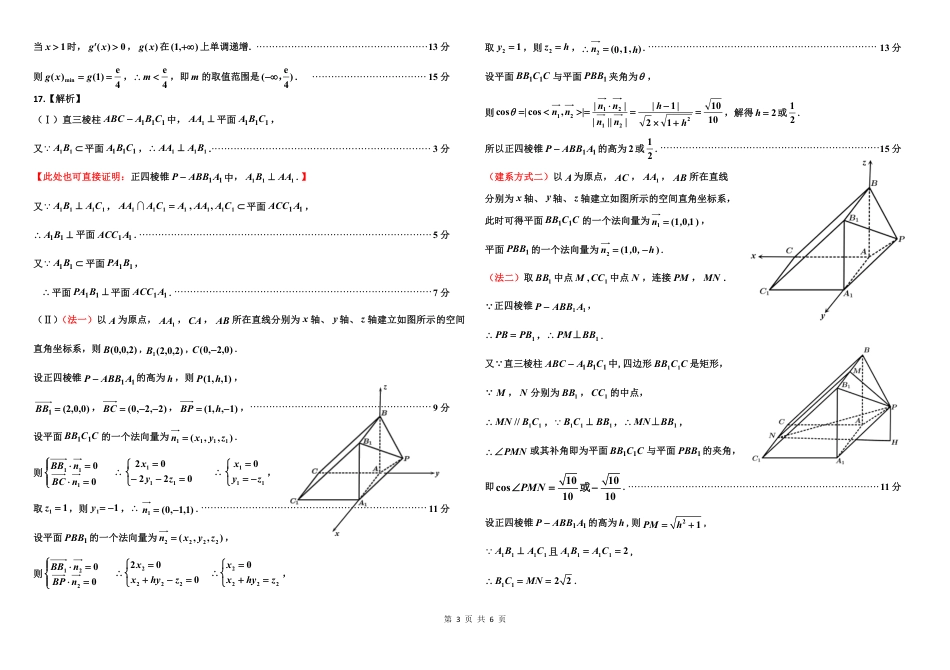 当 x > 1 时，g′(x) > 0，g(x) 在 (1,+∞) 上单调递增．……13 分
则 g(x)min = g(1) = e/4，∴ m < e/4，即 m 的取值范围是 (−∞, e/4)． ……15 分
17.【解析】
（Ⅰ）直三棱柱 ABC − A₁B₁C₁ 中，AA₁ ⊥ 平面 A₁B₁C₁，
又∵ A₁B₁ ⊂ 平面 A₁B₁C₁，∴ AA₁ ⊥ A₁B₁．……3 分
【此处也可直接证明：正四棱锥 P − ABB₁A₁ 中，A₁B₁ ⊥ AA₁．】
又∵ A₁B₁ ⊥ A₁C₁，AA₁ ⋂ A₁C₁ = A₁, AA₁, A₁C₁ ⊂ 平面 ACC₁A₁，
∴ A₁B₁ ⊥ 平面 ACC₁A₁．……5 分
又∵ A₁B₁ ⊂ 平面 PA₁B₁，
∴ 平面 PA₁B₁ ⊥ 平面 ACC₁A₁．……7 分
（Ⅱ）（法一）以 A 为原点，AA₁，CA，AB 所在直线分别为 x 轴、y 轴、z 轴建立如图所示的空间
直角坐标系，则 B(0,0,2)，B₁(2,0,2)，C(0,−2,0)．
设正四棱锥 P − ABB₁A₁ 的高为 h，则 P(1,h,1)，
BB₁→ = (2,0,0)，BC→ = (0,−2,−2)，BP→ = (1,h,−1)，……9 分
设平面 BB₁C₁C 的一个法向量为 n₁→ = (x₁, y₁, z₁)．
则 { BB₁→ · n₁→ = 0 ; BC→ · n₁→ = 0 ∴ { 2x₁ = 0 ; −2y₁ − 2z₁ = 0 ∴ { x₁ = 0 ; y₁ = −z₁ ，
取 z₁ = 1，则 y₁ = −1，∴ n₁→ = (0,−1,1)．……11 分
设平面 PBB₁ 的一个法向量为 n₂→ = (x₂, y₂, z₂)，
则 { BB₁→ · n₂→ = 0 ; BP→ · n₂→ = 0 ∴ { 2x₂ = 0 ; x₂ + hy₂ − z₂ = 0 ∴ { x₂ = 0 ; x₂ + hy₂ = z₂ ，
z
B
B₁
P
C
A
y
C₁
A₁
x
取 y₂ = 1，则 z₂ = h，∴ n₂→ = (0,1,h)．……13 分
设平面 BB₁C₁C 与平面 PBB₁ 夹角为 θ，
则 cosθ = |cos < n₁→, n₂→ >| = |n₁→ · n₂→| / |n₁→| |n₂→| = |h − 1| / √2 × √1 + h² = √10/10，解得 h = 2 或 1/2．
所以正四棱锥 P − ABB₁A₁ 的高为 2 或 1/2．……15 分
（建系方式二）以 A 为原点，AC，AA₁，AB 所在直线
分别为 x 轴、y 轴、z 轴建立如图所示的空间直角坐标系，
此时可得平面 BB₁C₁C 的一个法向量为 n₁→ = (1,0,1)，
平面 PBB₁ 的一个法向量为 n₂→ = (1,0,−h)．
z
B
B₁
P
C
A
x
C₁
A₁
y
（法二）取 BB₁ 中点 M , CC₁ 中点 N，连接 PM，MN．
∵正四棱锥 P − ABB₁A₁，
∴ PB = PB₁，∴ PM⊥BB₁．
又∵ 直三棱柱 ABC − A₁B₁C₁ 中, 四边形 BB₁C₁C 是矩形，
∵ M，N 分别为 BB₁，CC₁ 的中点，
∴ MN // B₁C₁，∵ B₁C₁ ⊥ BB₁，∴ MN⊥BB₁，
∴ ∠PMN 或其补角即为平面 BB₁C₁C 与平面 PBB₁ 的夹角，
即 cos∠PMN = √10/10 或 − √10/10．……11 分
设正四棱锥 P − ABB₁A₁ 的高为 h , 则 PM = √h² + 1，
∵ A₁B₁ ⊥ A₁C₁ 且 A₁B₁ = A₁C₁ = 2，
∴ B₁C₁ = MN = 2√2．
B
M
B₁
P
C
A
N
H
C₁
A₁
第 3 页 共 6 页